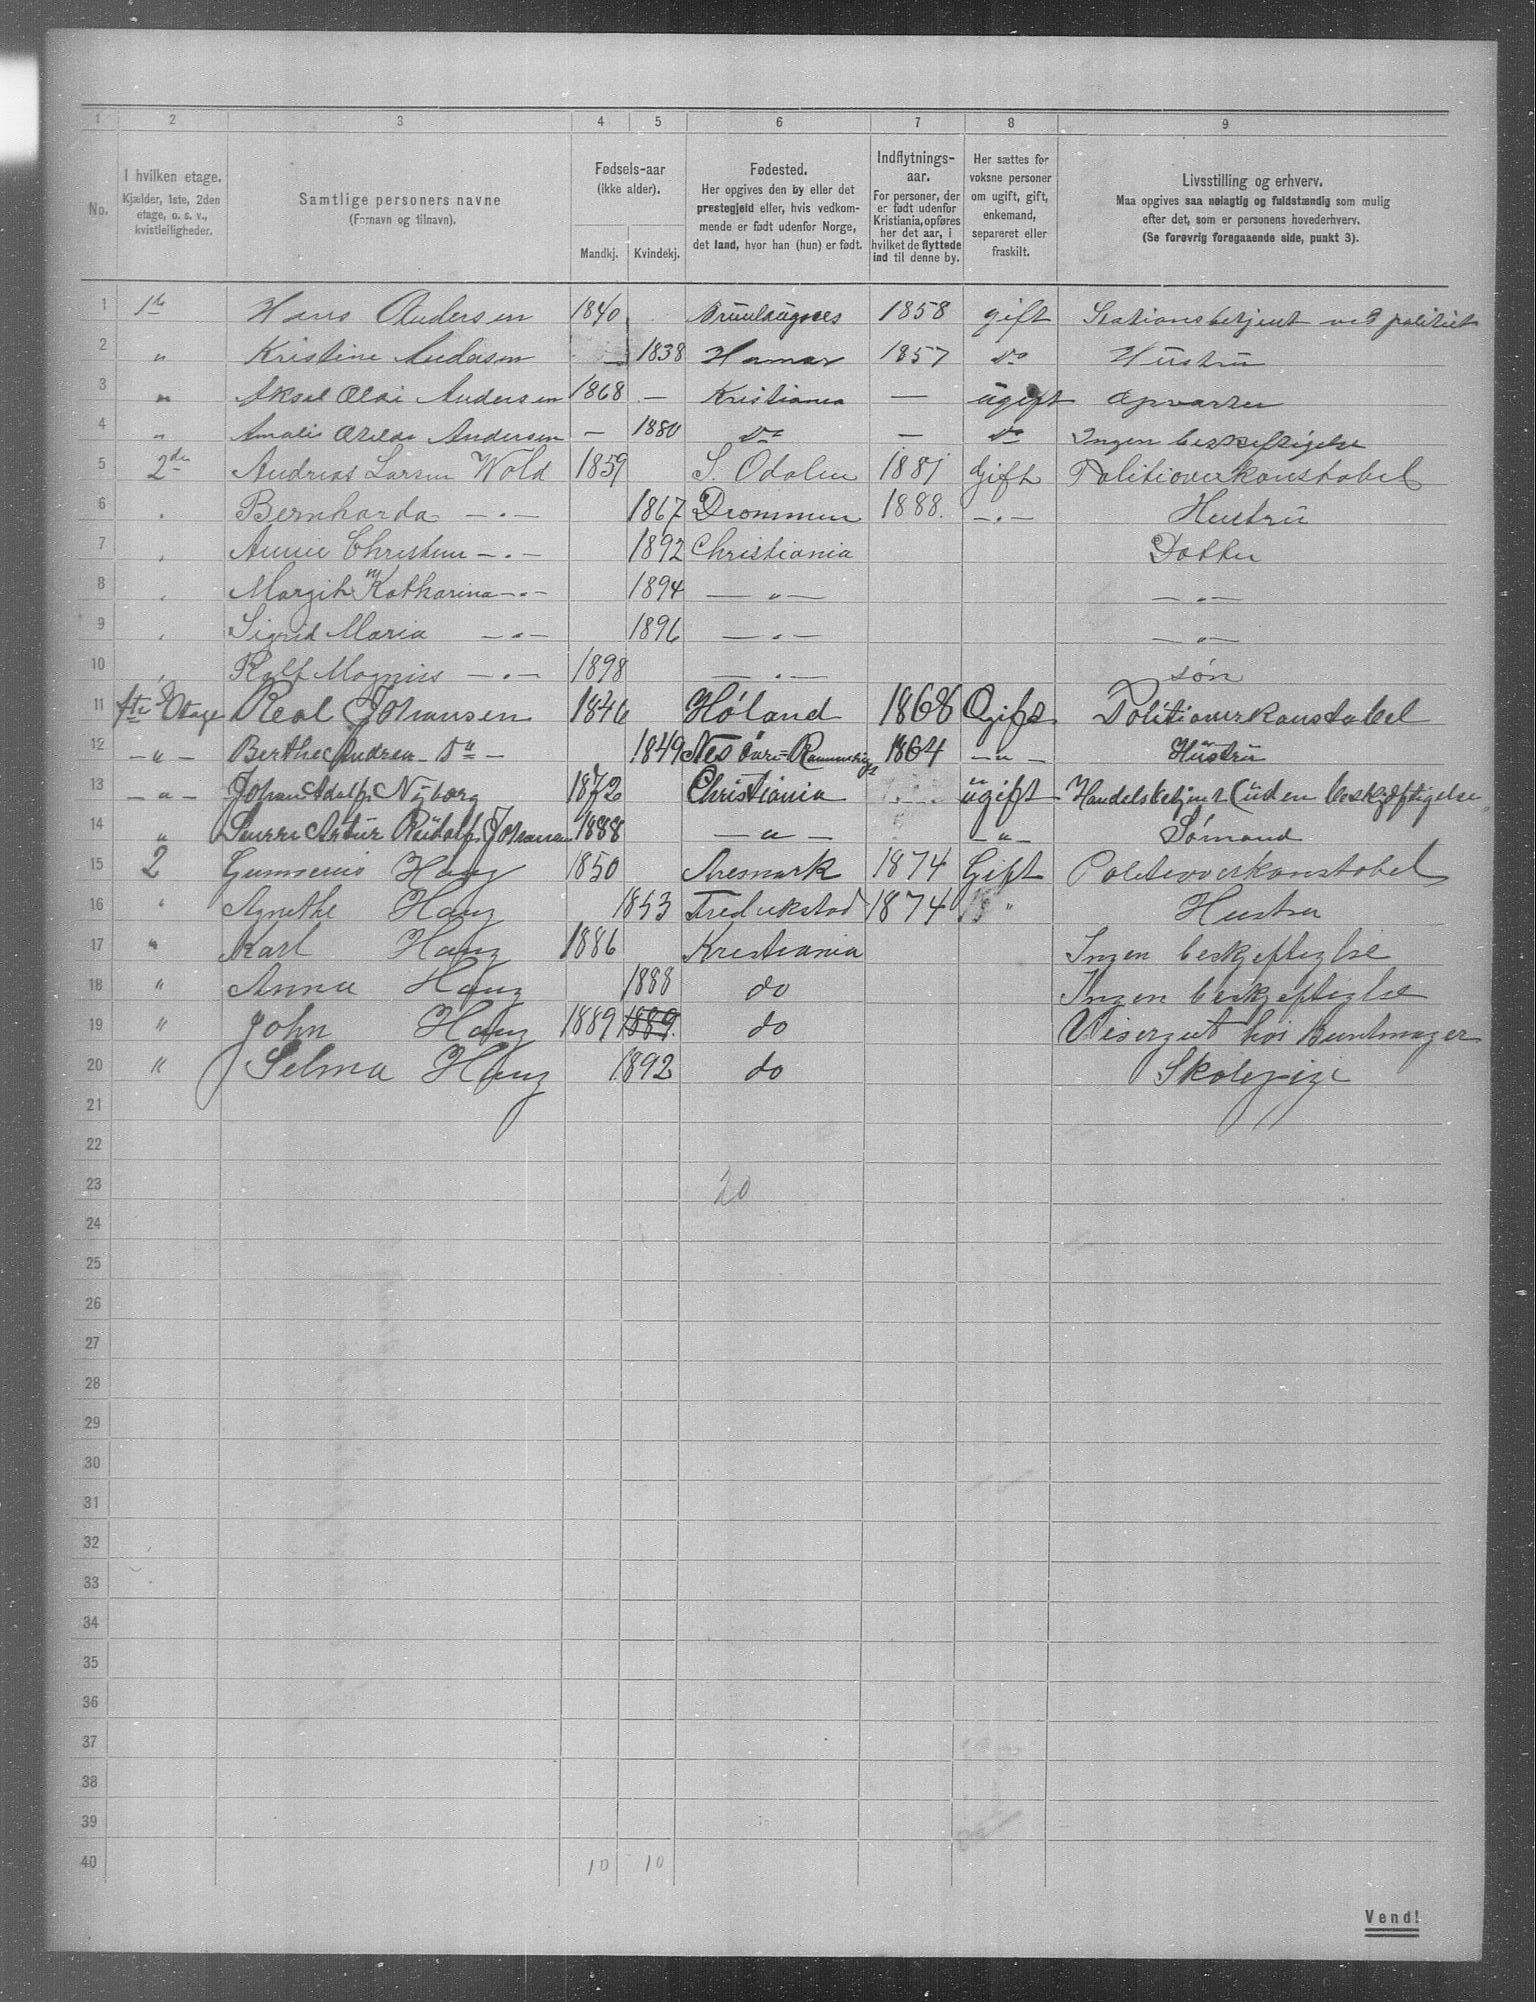 1 2 3 4 5 6 7 8 9
No. I hvilken etage. Kjælder, 1ste, 2den etage, o. s. v., kvistleiligheder. Samtlige personers navne (Fornavn og tilnavn). Fødsels-aar (ikke alder). Mandkj. Kvindekj. Fødested. Her opgives den by eller det prestegjeld eller, hvis vedkommende er født udenfor Norge, det land, hvor han (hun) er født. Indflytnings-aar. For personer, der er født udenfor Kristiania, opføres her det aar, i hvilket de flyttede ind til denne by. Her sættes for voksne personer om ugift, gift, enkemand, separeret eller fraskilt. Livsstilling og erhverv. Maa opgives saa nøiagtig og fuldstændig som mulig efter det, som er personens hovederhverv. (Se forøvrig foregaaende side, punkt 3).
1 1ste Hans Andersen 1840 Brunlaugnes 1858 gift Stationsbetjent ved politiet
2 " Kristine Andersen — 1838 Hamar 1857 do Hustru
3 " Aksel Olai Andersen 1868 — Kristiania — ugift Opvarter
4 " Amalie Andersen — 1880 do — do Ingen beskjeftigelse
5 2den Andreas Larsen Wold 1859 S. Odalen 1881 Gift Politioverkonstabel
6 " Bernharda —"— 1867 Drammen 1888. —"— Hustru
7 " Annie Christine —"— 1892 Christiania Datter
8 " Margit Katharina —"— 1894 —"— —"—
9 " Sigrid Maria —"— 1896 —"— —"—
10 " Rolf Magnus —"— 1898 —"— søn
11 1ste Etage Johansen 1846 Høland 1868 Gift Politioverkonstabel
12 —"— Berthe Andrea Do 1849 Nes 1864 —"— Hustru
13 —"— Johan Adolf Nyborg 1872 Christiania ugift Handelsbetjent (uden beskjæftigelse
14 " Artur Rudolf Johansen 1888 —"— —"— Sømand
15 2 Gunnerius Haug 1850 Aremark 1874 Gift Politioverkonstabel
16 " Agnethe Haug 1853 Fredrikstad 1874 " Hustru
17 " Karl Haug 1886 Kristiania Ingen beskjeftigelse
18 " Anna Haug 1888 do Ingen beskjeftigelse
19 " John Haug 1889 1889. do Visergut hos Buntmager
20 " Selma Haug 1892 do Skolepige
21
22
23 20
24
25
26
27
28
29
30
31
32
33
34
35
36
37
38
39
40 10 10
Vend!